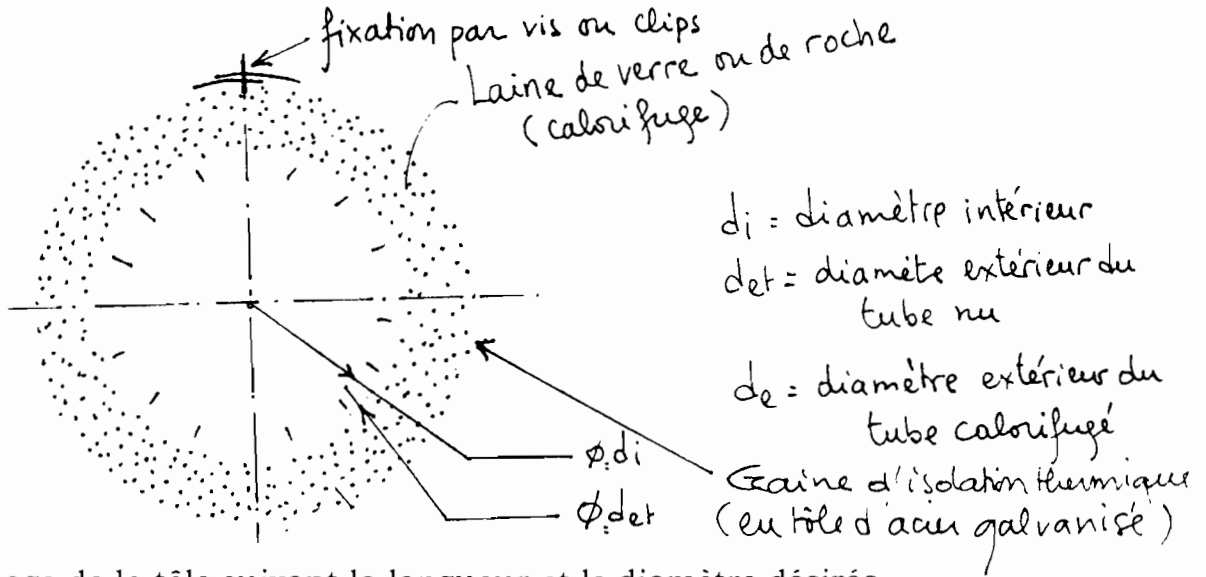 fixation par vis ou clips
Laine de verre ou de roche
(calorifuge)
di = diamètre intérieur
det = diamète extérieur du
tube nu
de = diamètre extérieur du
tube calorifugé
Ø di
Gaine d'isolation thermique
Ø det
(en tôle d'acier galvanisé)
de la tôle suivant la longueur et le diamètre désirés